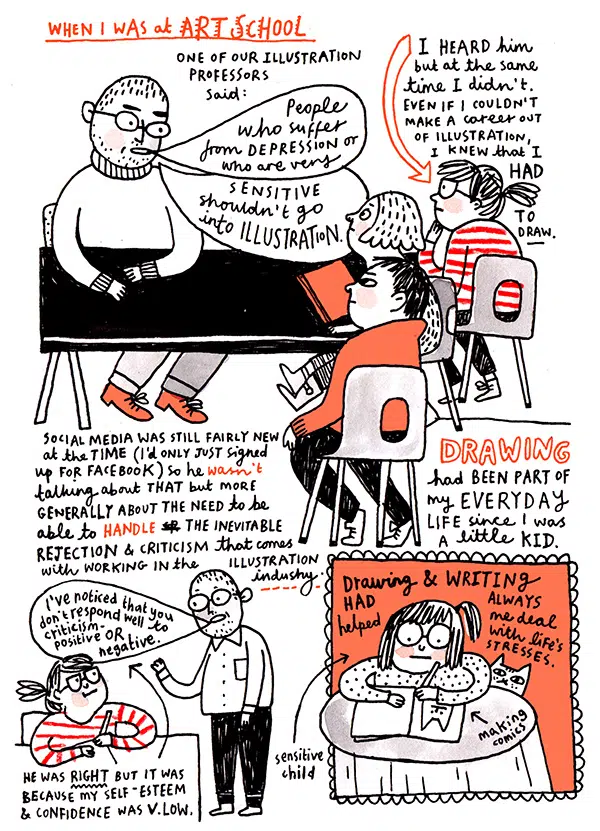 WHEN I WAS at ART SCHOOL
ONE OF OUR ILLUSTRATION
PROFESSORS
said:
People
who suffer
from DEPRESSION or
who are very
SENSITIVE
shouldn't go
into ILLUSTRATION.
I HEARD him
but at the same
time I didn't.
EVEN IF I COULDN'T
MAKE A career OUT
OF ILLUSTRATION,
I KNEW that I
HAD
TO
DRAW.
SOCIAL MEDIA WAS STILL FAIRLY NEW
at the TIME (I'd ONLY JUST signed
up FOR FACEBOOK) so he wasn't
talking about THAT but MORE
GENERALLY ABOUT THE NEED to be
able to HANDLE THE INEVITABLE
REJECTION & CRITICISM that comes
with WORKING IN the ILLUSTRATION
industry.
DRAWING
had BEEN PART OF
my EVERYDAY
LIFE since I was
A little KID.
I've noticed that you
don't respond well to
criticism-
positive OR
negative.
HE WAS RIGHT BUT IT WAS
BECAUSE MY SELF-ESTEEM
& CONFIDENCE WAS V.LOW.
Drawing & WRITING
HAD ALWAYS
helped me deal
with life's
STRESSES.
making
comics
sensitive
child